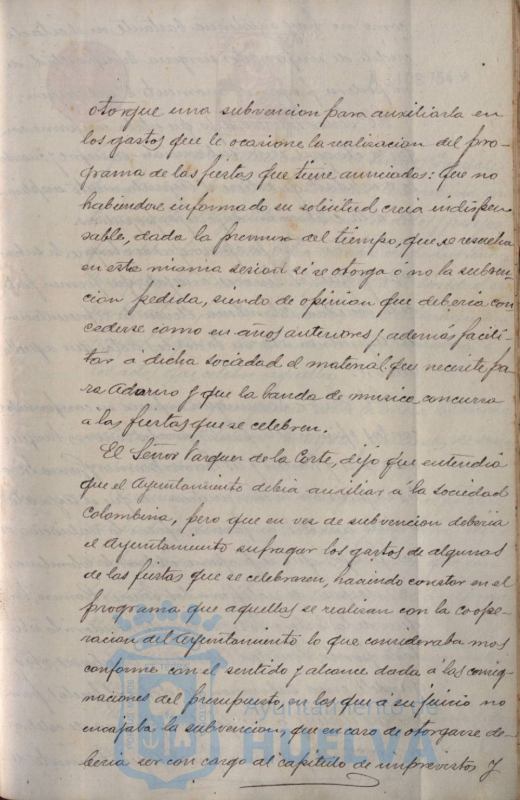 otorgue una subvencion para auxiliarla en
los gastos que le ocasione la realizacion del pro-
grama de las fiestas que tiene anunciados: que no
habiendose informado su solicitud creia indispen
sable, dada la premura del tiempo, que se resuelva
en esta misma sesion si se otorga ó no la subven-
cion pedida, siendo de opinion que deberia con
cederse como en años anteriores y además facili-
tar á dicha sociedad el material que necesite pa
ra adorno y que la banda de musica concurra
a las fiestas que se celebren.
El Señor Vazquez de la Corte, dijo que entendia
que el Ayuntamiento debia auxiliar á la sociedad
Colombina, pero que en vez de subvencion deberia
el Ayuntamiento sufragar los gastos de algunas
de las fiestas que se celebrasen, haciendo constar en el
programa que aquellas se realizan con la coope-
racion del Ayuntamiento lo que consideraba mas
conforme con el sentido y alcance dada á las consig-
naciones del presupuesto, en los que á su juicio no
encajaba la subvencion, que en caso de otorgarse de-
beria ser con cargo al capitulo de imprevistos y
Ayuntamiento
HUELVA